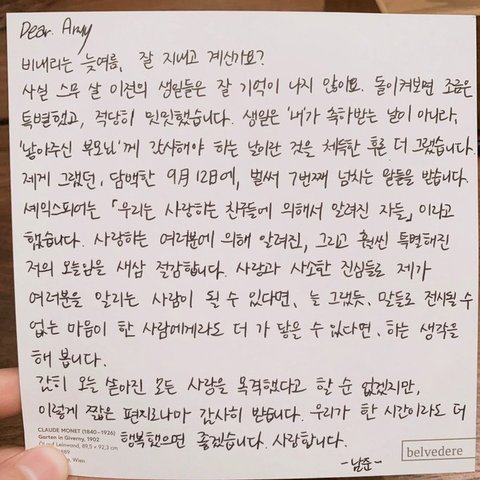 Dear. Army
비내리는 늦여름, 잘 지내고 계신가요?
사실 스무 살 이전의 생일들은 잘 기억이 나지 않아요. 돌이켜보면 조금은
특별했고, 적당히 밋밋했습니다. 생일은 '내'가 축하받는 날이 아니라,
'낳아주신 부모님'께 감사해야 하는 날이란 것을 체득한 후론 더 그랬습니다.
제게 그랬던, 담백한 9월 12일에, 벌써 7번째 넘치는 말들을 받습니다.
셰익스피어는 「우리는 사랑하는 친구들에 의해서 알려진 자들」이라고
했습니다. 사랑하는 여러분에 의해 알려진, 그리고 훨씬 특별해진
저의 오늘임을 새삼 절감합니다. 사랑과 사소한 진심들로 제가
여러분을 알리는 사람이 될 수 있다면, 늘 그랬듯, 말들로 전시될 수
없는 마음이 한 사람에게라도 더 가 닿을 수 있다면, 하는 생각을
해 봅니다.
감히 오늘 쏟아진 모든 사랑을 목격했다고 할 순 없겠지만,
이렇게 짧은 편지로나마 감사히 받습니다. 우리가 한 시간이라도 더
행복했으면 좋겠습니다. 사랑합니다.
-남준-
CLAUDE MONET (1840–1926)
Garten in Giverny, 1902
Öl auf Leinwand, 89,5 × 92,3 cm
Wien
belvedere